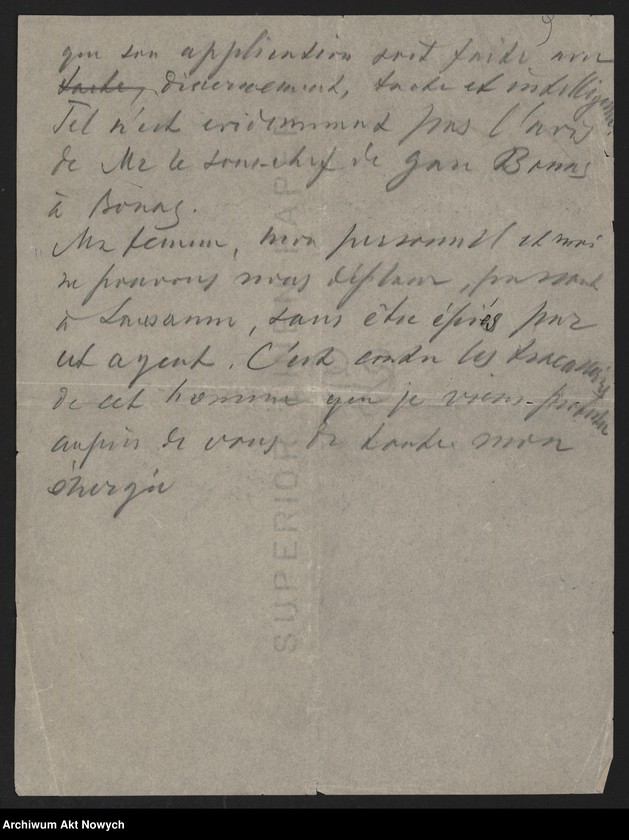 que son application soit faite avec
tacte, discernement, tacte et intelligence.
Tel n'est evidemment pas l'avis
de Mr le sous-chef de gare Bonny
à Bonny.
Ma femme, mon personnel et moi
ne pouvons nous déplacer, passant
à Lausanne, sans être épiés par
cet agent. C'est contre les tracasseries
de cet homme que je viens protester
auprès de vous de toute mon
énergie
SUPERIOR
Archiwum Akt Nowych